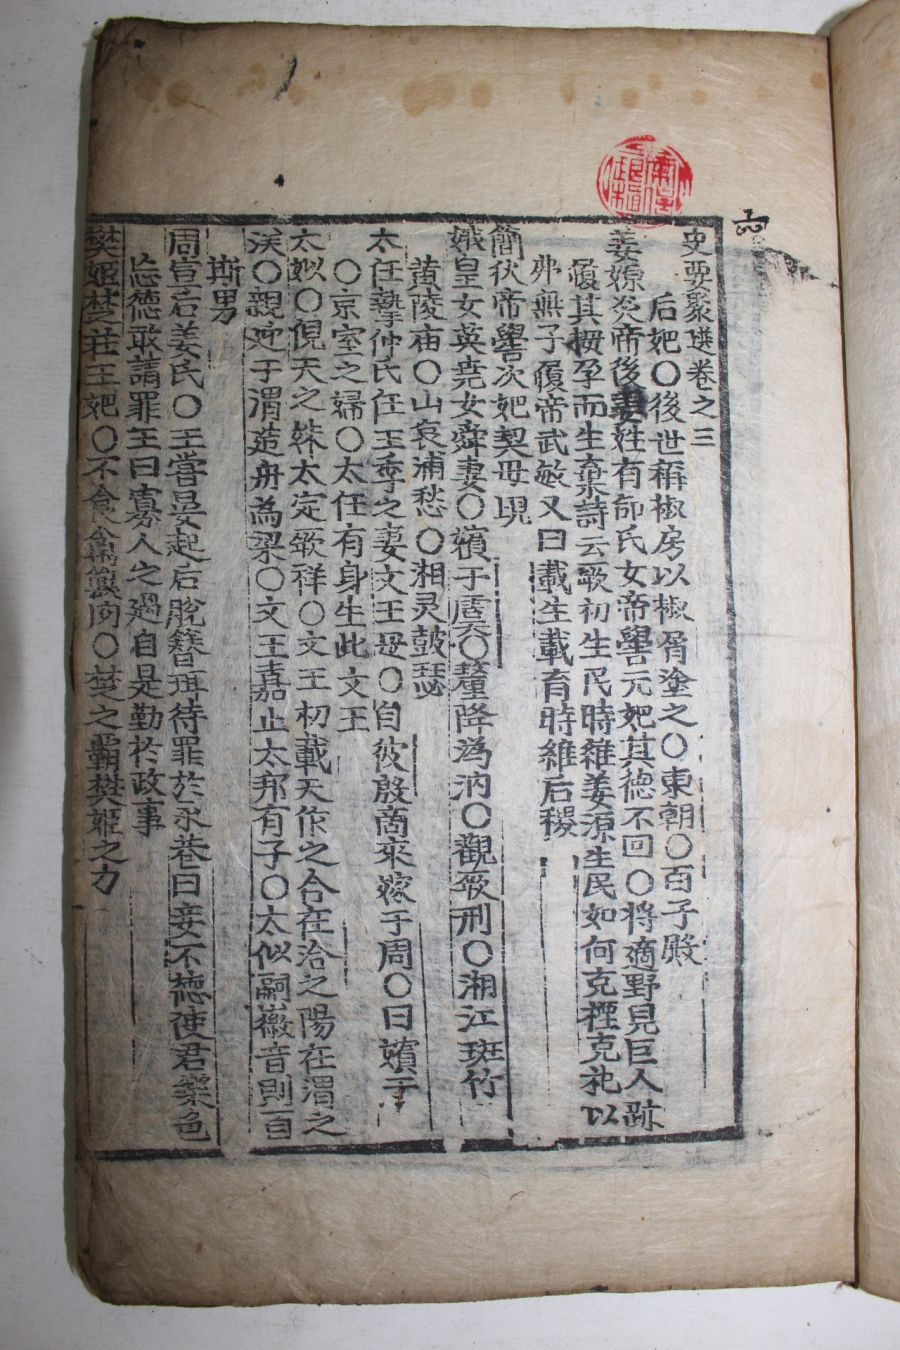 史要聚選卷之三
后妃〇後世稱椒房以椒屑塗之〇東朝〇百子殿
姜嫄炎帝後姜姓有邰氏女帝嚳元妃其德不回〇將適野見巨人跡
履其拇孕而生棄詩云厥初生民時維姜源生民如何克禋克祀以
弗無子履帝武敏又曰載生載育時維后稷
簡狄帝嚳次妃契母
娥皇女英堯女舜妻〇嬪于虞〇釐降溈汭〇觀厥刑〇湘江斑竹
黄陵庙〇山哀浦愁〇湘灵鼓瑟
太任摯仲氏任王季之妻文王母〇自彼殷商來嫁于周〇曰嬪于
〇京室之婦〇太任有身生此文王
太姒〇俔天之妹太定厥祥〇文王初載天作之合在洽之陽在渭之
涘〇親迎于渭造舟為梁〇文王嘉止太邦有子〇太似嗣徽音則百
斯男
周宣后姜氏〇王嘗晏起后脫簪珥待罪於永巷曰妾不德使君樂色
忘德敢請罪王曰寡人之過自是勤於政事
樊姬楚莊王妃〇不食禽獸肉〇楚之霸樊姬之力